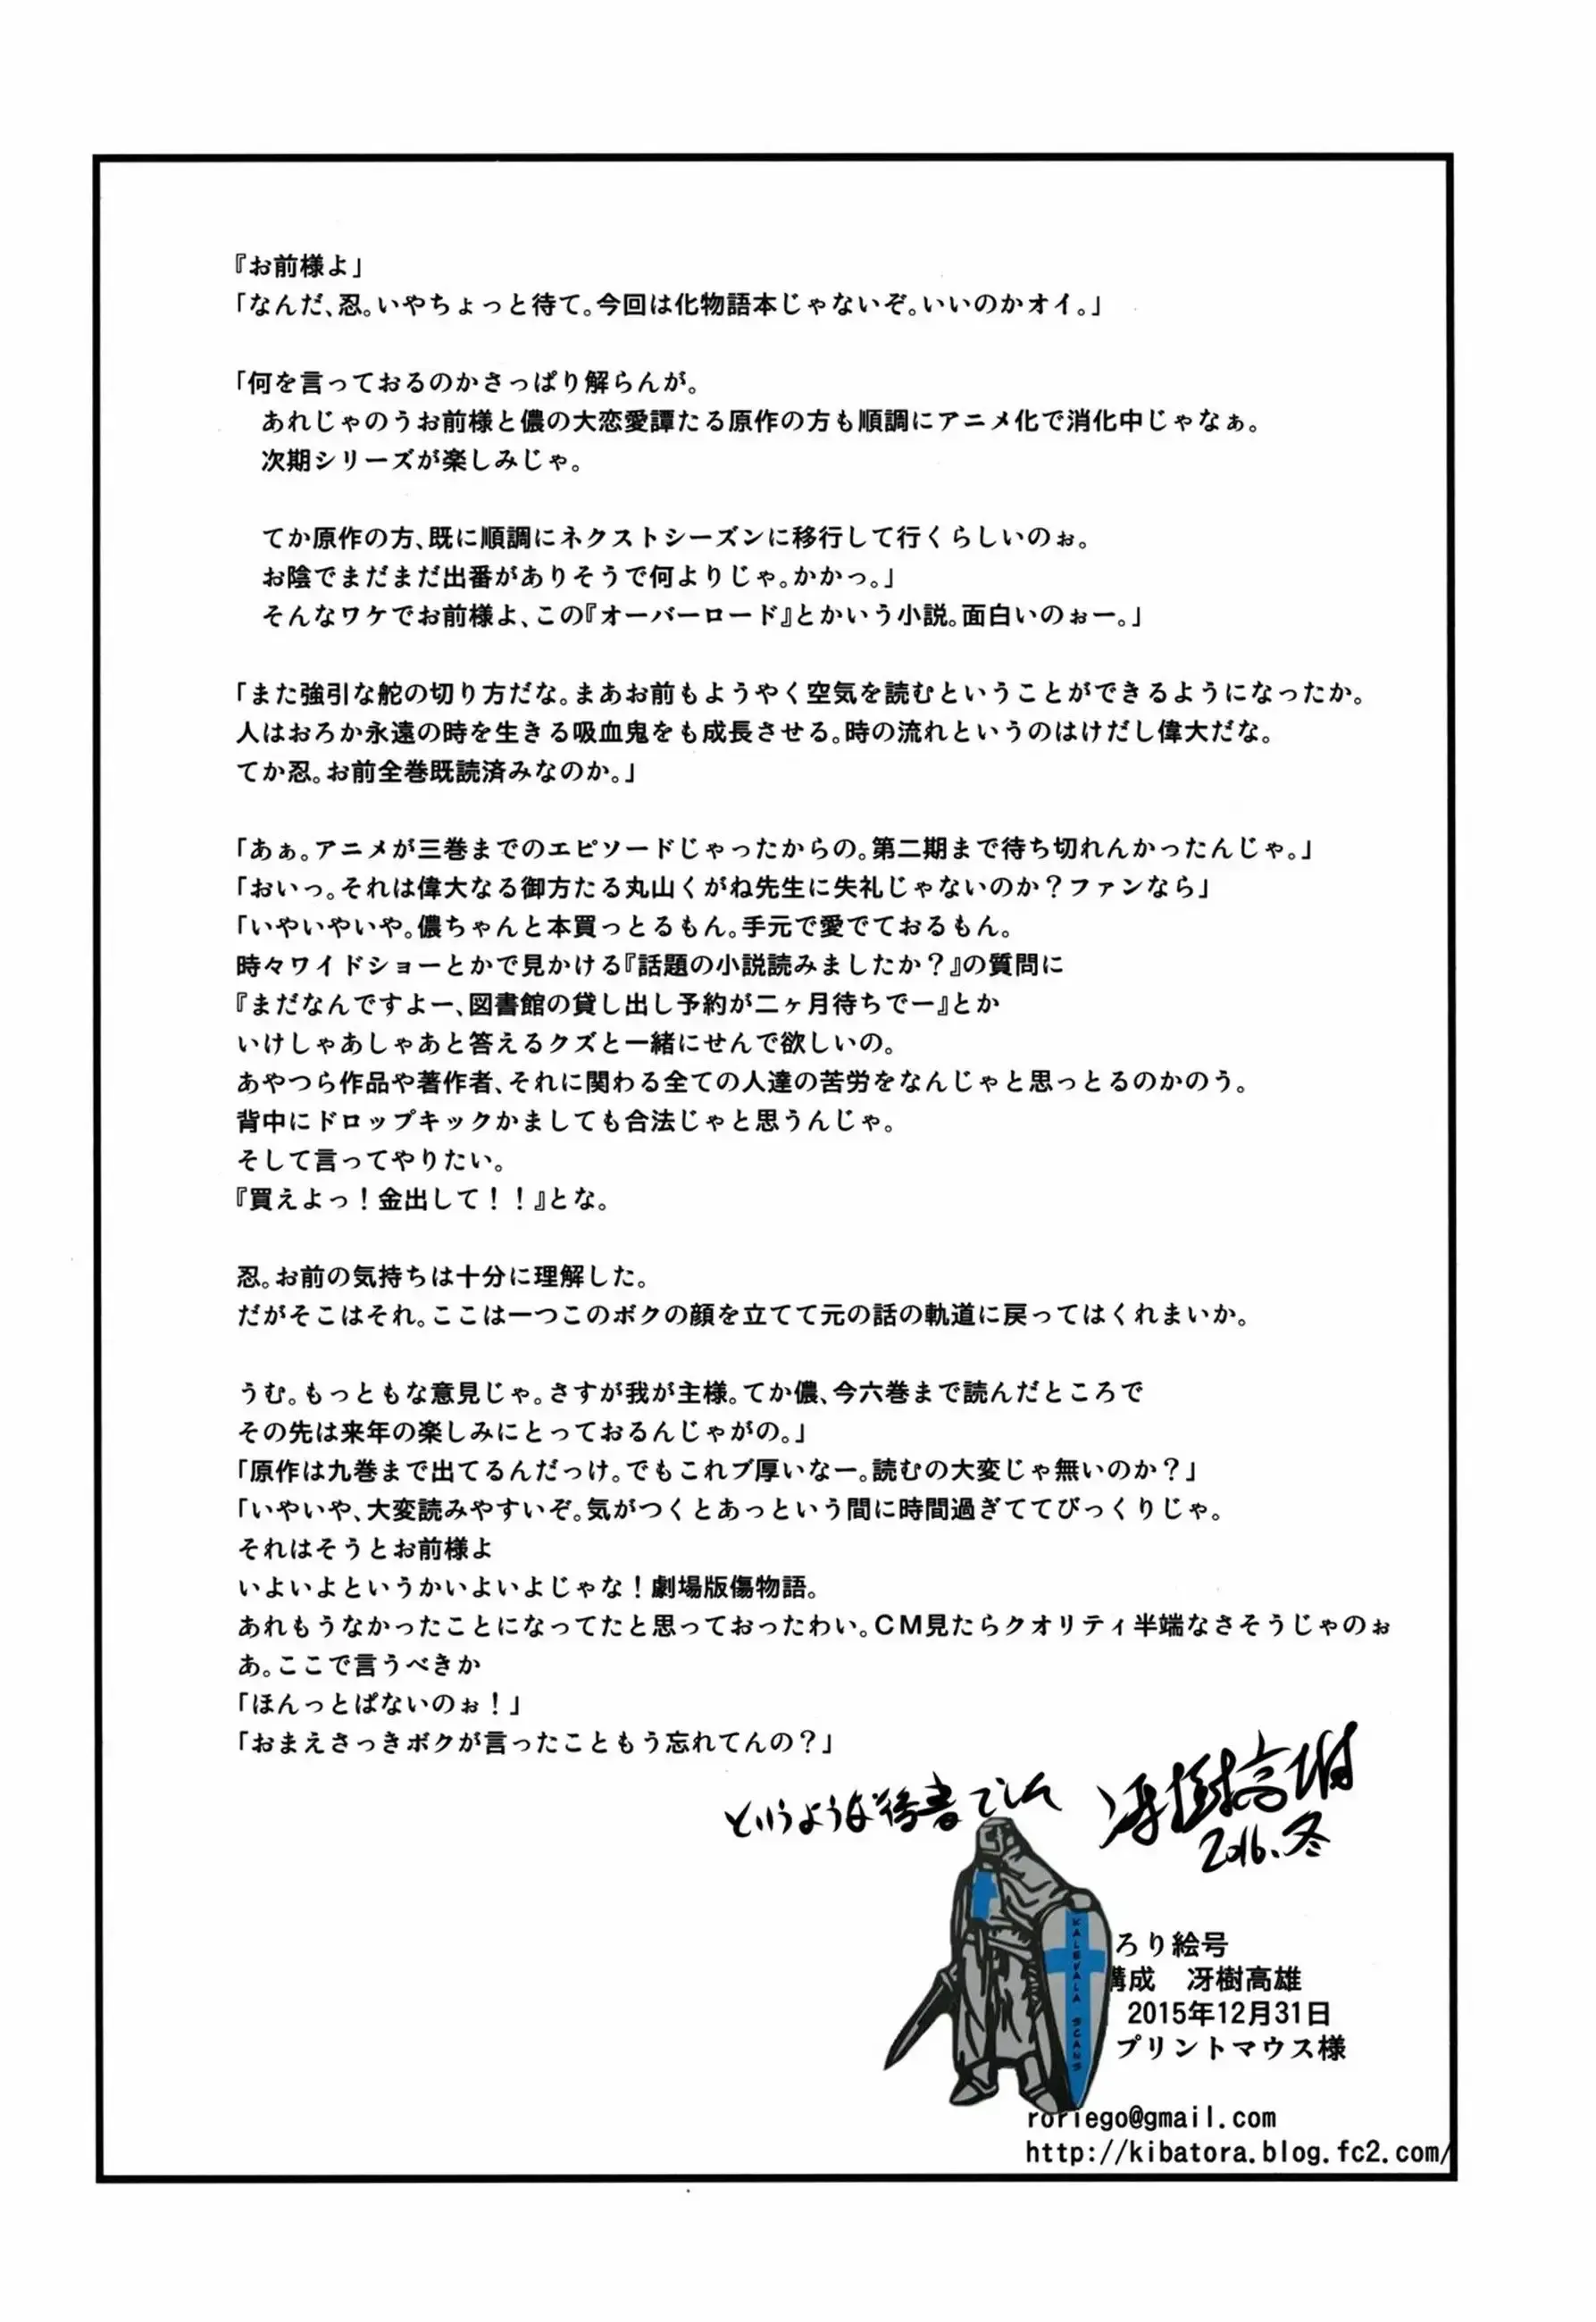 『お前様よ」
「なんだ、忍。いやちょっと待て。今回は化物語本じゃないぞ。いいのかオイ。」
「何を言っておるのかさっぱり解らんが。
あれじゃのうお前様と儂の大恋愛譚たる原作の方も順調にアニメ化で消化中じゃなぁ。
次期シリーズが楽しみじゃ。
てか原作の方、既に順調にネクストシーズンに移行して行くらしいのぉ。
お陰でまだまだ出番がありそうで何よりじゃ。かかっ。」
そんなワケでお前様よ、この『オーバーロード』とかいう小説。面白いのぉー。」
「また強引な舵の切り方だな。まあお前もようやく空気を読むということができるようになったか。
人はおろか永遠の時を生きる吸血鬼をも成長させる。時の流れというのはけだし偉大だな。
てか忍。お前全巻既読済みなのか。」
「あぁ。アニメが三巻までのエピソードじゃったからの。第二期まで待ち切れんかったんじゃ。」
「おいっ。それは偉大なる御方たる丸山くがね先生に失礼じゃないのか？ファンなら」
「いやいやいや。儂ちゃんと本買っとるもん。手元で愛でておるもん。
時々ワイドショーとかで見かける『話題の小説読みましたか？』の質問に
『まだなんですよー、図書館の貸し出し予約が二ヶ月待ちでー』とか
いけしゃあしゃあと答えるクズと一緒にせんで欲しいの。
あやつら作品や著作者、それに関わる全ての人達の苦労をなんじゃと思っとるのかのう。
背中にドロップキックかましても合法じゃと思うんじゃ。
そして言ってやりたい。
『買えよっ！金出して！！』とな。
忍。お前の気持ちは十分に理解した。
だがそこはそれ。ここは一つこのボクの顔を立てて元の話の軌道に戻ってはくれまいか。
うむ。もっともな意見じゃ。さすが我が主様。てか儂、今六巻まで読んだところで
その先は来年の楽しみにとっておるんじゃがの。」
「原作は九巻まで出てるんだっけ。でもこれブ厚いなー。読むの大変じゃ無いのか？」
「いやいや、大変読みやすいぞ。気がつくとあっという間に時間過ぎててびっくりじゃ。
それはそうとお前様よ
いよいよというかいよいよじゃな！劇場版傷物語。
あれもうなかったことになってたと思っておったわい。CM見たらクオリティ半端なさそうじゃのぉ
あ。ここで言うべきか
「ほんっとぱないのぉ！」
「おまえさっきボクが言ったこともう忘れてんの？」
というような後書でした
冴樹高雄
2016.冬
ろり絵号
構成　冴樹高雄
2015年12月31日
プリントマウス様
KALEVALA SCANS
roriego@gmail.com
http://kibatora.blog.fc2.com/